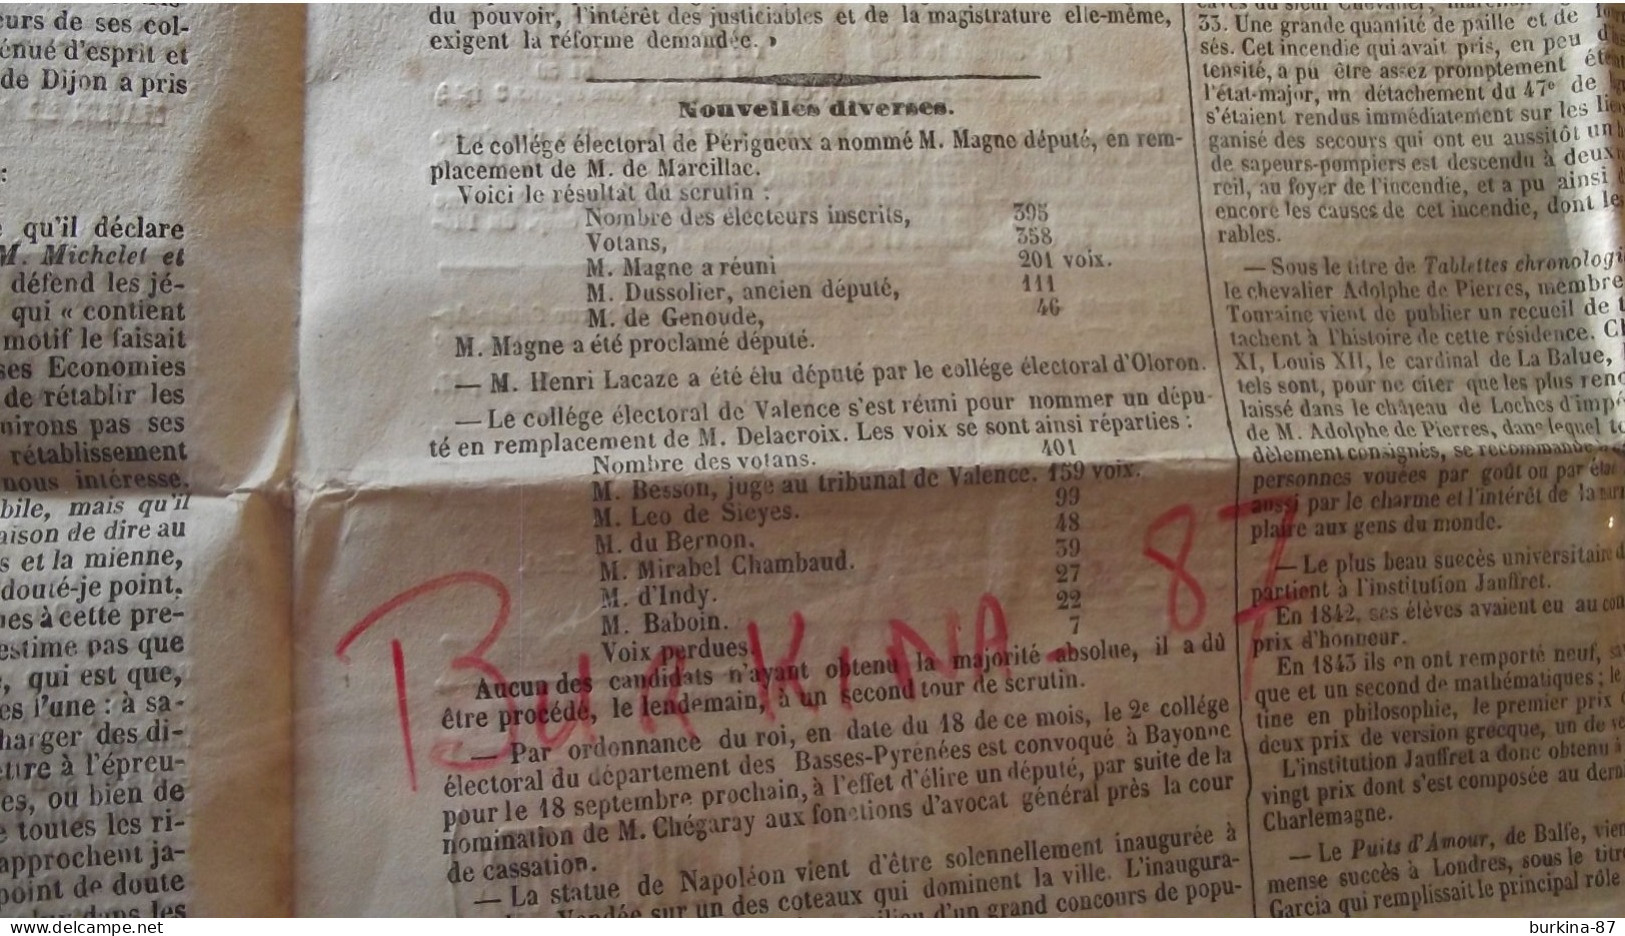 eurs de ses col-
énué d'esprit et
de Dijon a pris
:
qu'il déclare
M. Michelet et
défend les jé-
qui « contient
motif le faisait
ses Economies
de rétablir les
nirons pas ses
rétablissement
nous intéresse.
bile, mais qu'il
aison de dire au
s et la mienne,
douté-je point,
ues à cette pre-
estime pas que
, qui est que,
es l'une : à sa-
harger des di-
ttre à l'épreu-
es, ou bien de
e toutes les ri-
approchent ja-
point de doute
dans les
du pouvoir, l'intérêt des justiciables et de la magistrature elle-même,
exigent la réforme demandée. »
Nouvelles diverses.
Le collége électoral de Périgueux a nommé M. Magne député, en rem-
placement de M. de Marcillac.
Voici le résultat du scrutin :
Nombre des électeurs inscrits, 395
Votans, 358
M. Magne a réuni 201 voix.
M. Dussolier, ancien député, 111
M. de Genoude, 46
M. Magne a été proclamé député.
— M. Henri Lacaze a été élu député par le collége électoral d'Oloron.
— Le collége électoral de Valence s'est réuni pour nommer un dépu-
té en remplacement de M. Delacroix. Les voix se sont ainsi réparties :
Nombre des votans. 401
M. Besson, juge au tribunal de Valence. 159 voix.
M. Leo de Sieyes. 99
M. du Bernon. 48
M. Mirabel Chambaud. 39
M. d'Indy. 27
M. Baboin. 22
Voix perdues. 7
Aucun des candidats n'ayant obtenu la majorité absolue, il a dû
être procédé, le lendemain, à un second tour de scrutin.
— Par ordonnance du roi, en date du 18 de ce mois, le 2e collége
électoral du département des Basses-Pyrénées est convoqué à Bayonne
pour le 18 septembre prochain, à l'effet d'élire un député, par suite de la
nomination de M. Chégaray aux fonctions d'avocat général près la cour
de cassation.
— La statue de Napoléon vient d'être solennellement inaugurée à
Vendée sur un des coteaux qui dominent la ville. L'inaugura-
d'un grand concours de popu-
BURKINA_87
33. Une grande quantité de paille et de
sés. Cet incendie qui avait pris, en peu
tensité, a pu être assez promptement
l'état-major, un détachement du 47e de
s'étaient rendus immédiatement sur les
ganisé des secours qui ont eu aussitôt un
de sapeurs-pompiers est descendu à deux
reil, au foyer de l'incendie, et a pu ainsi
encore les causes de cet incendie, dont les
rables.
— Sous le titre de Tablettes chronologi
le chevalier Adolphe de Pierres, membre
Touraine vient de publier un recueil de
tachent à l'histoire de cette résidence.
XI, Louis XII, le cardinal de La Balue,
tels sont, pour ne citer que les plus
laissé dans le château de Loches
de M. Adolphe de Pierres, dans lequel
dèlement consignés, se recommande
personnes vouées par goût ou par
aussi par le charme et l'intérêt de la
plaire aux gens du monde.
— Le plus beau succès universitaire
partient à l'institution Jauffret.
En 1842, ses élèves avaient eu au
prix d'honneur.
En 1843 ils en ont remporté neuf,
que et un second de mathématiques ; le
tine en philosophie, le premier prix
deux prix de version grecque, un de
L'institution Jauffret a donc obtenu
vingt prix dont s'est composée au
Charlemagne.
— Le Puits d'Amour, de Balfe,
mense succès à Londres, sous le titre
Garcia qui remplissait le principal rôle
delcampe.net
burkina-87